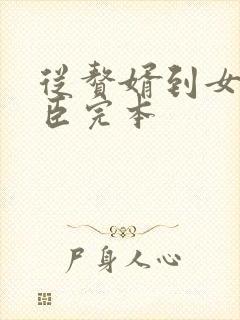 从赘婿到女
臣完本
尸身人心